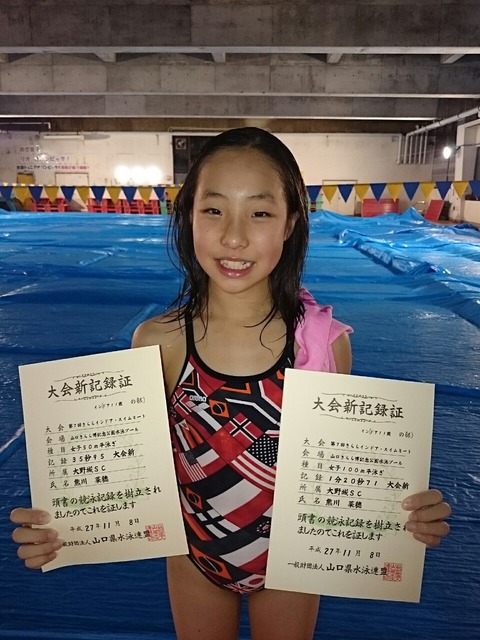 大会新記録証
インドア11歳 の部
大会 第7回きららインドア・スイムミート
会場 山口きらら博記念公園水泳プール
種目 女子50m平泳ぎ
記録 35秒95 大会新
所属 大野城SC
氏名 熊川 菜穂
頭書の競泳記録を樹立され
ましたのでこれを証します
平成 27年11月 8日
一般財団法人 山口県水泳連盟
大会新記録証
の部
大会 第7回きららインドア・スイムミート
会場 山口きらら博記念公園水泳プール
種目 女子100m平泳ぎ
記録 1分20秒71 大会新
所属 大野城SC
氏名 熊川 菜穂
頭書の競泳記録を樹立され
ましたのでこれを証します
平成 27年11月 8日
一般財団法人 山口県水泳連盟
arena